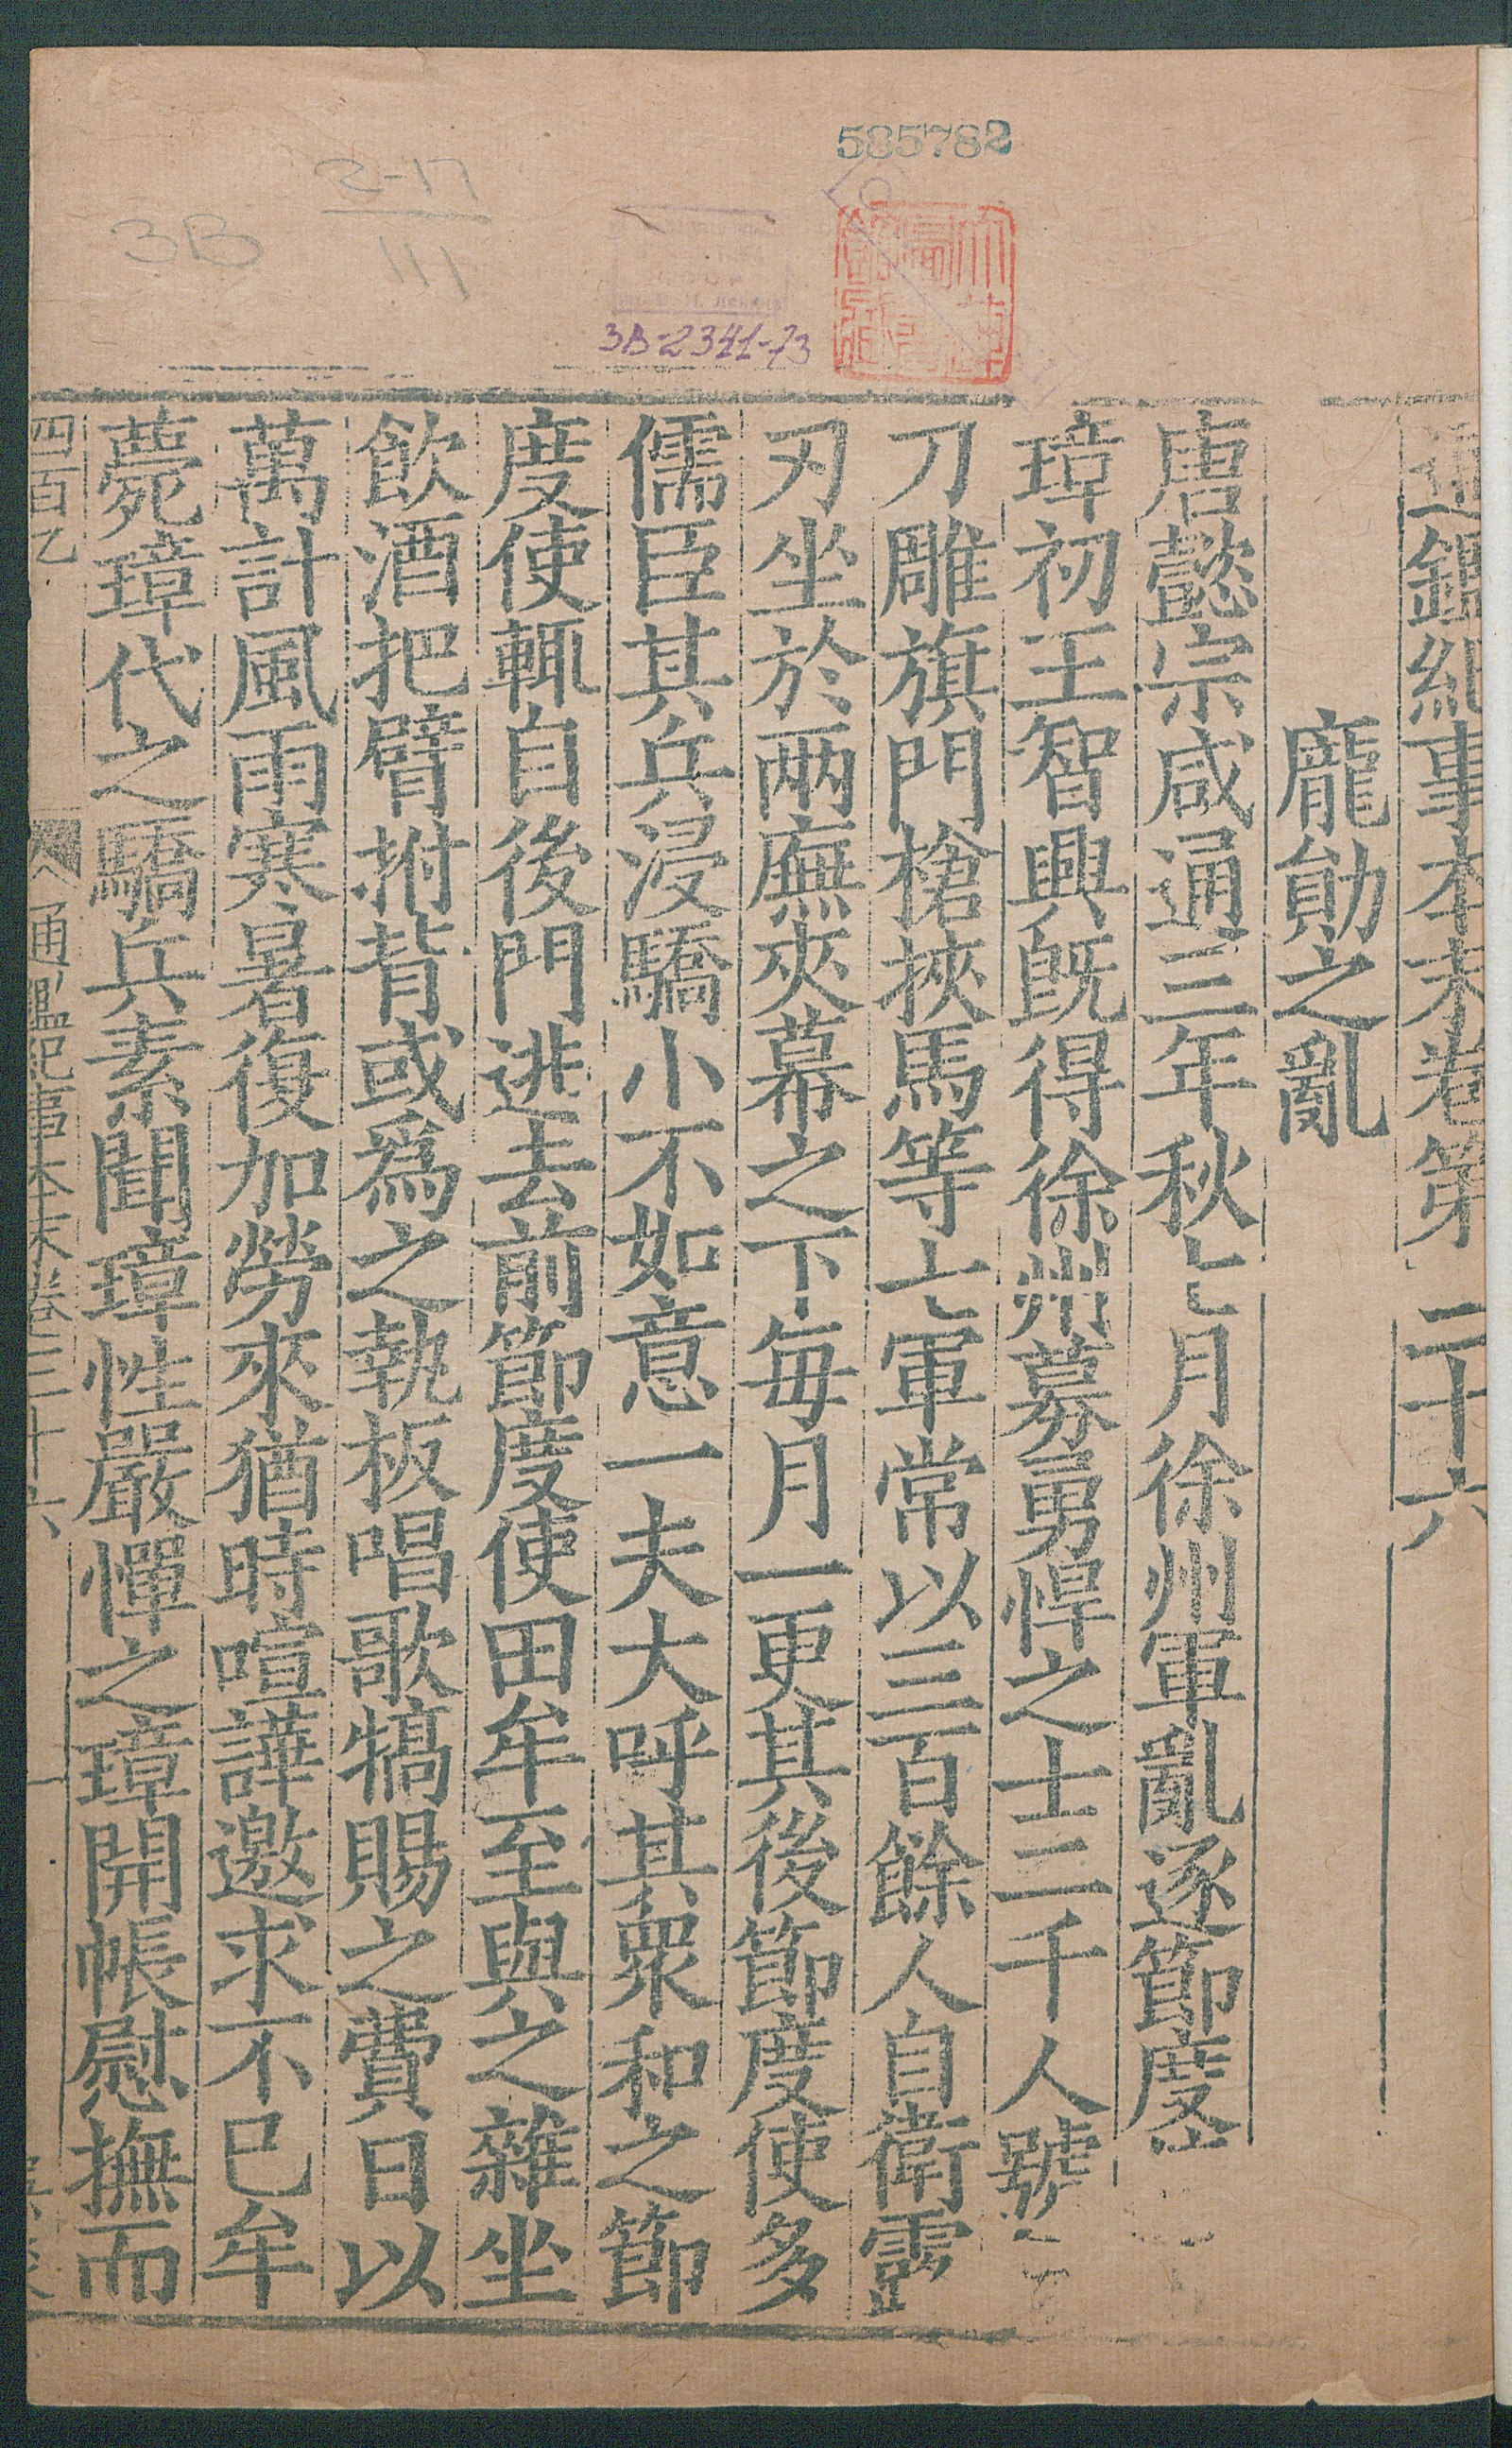 585782
2-17
111
3B
3B-2341-73
通鑑紀事本末卷第三十六
龐勛之亂
唐懿宗咸通三年秋七月徐州軍亂逐節度
璋初王智興既得徐州募勇悍之士二千人號
刀雕旗門槍挾馬等七軍常以三百餘人自衛露
刃坐於兩廡夾幕之下每月一更其後節度使多
儒臣其兵浸驕小不如意一夫大呼其衆和之節
度使輒自後門逃去前節度使田牟至與之雜坐
飲酒把臂拊背或爲之執板唱歌犒賜之費日以
萬計風雨寒暑復加勞來猶時喧譁邀求不已牟
薨璋代之驕兵素聞璋性嚴憚之璋開帳慰撫而
四百乙
通鑑紀事本末卷三十六
一